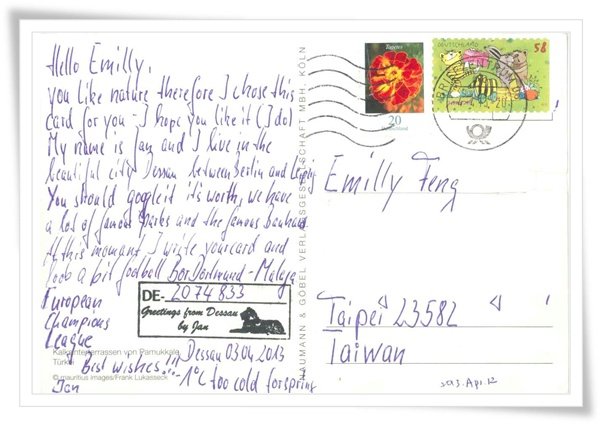 Hello Emilly,
you like nature therefore I chose this
card for you - I hope you like it (I do)
My name is Jan and I live in the
beautiful city Dessau between Berlin and Leipzig
You should google it it's worth, we have
a lot of famous Parks and the famous Bauhaus
At this momant I write your card and
look a bit football Bor. Dortmund - Malaga
European
Champions
League
DE-2074833
Greetings from Dessau
by Jan
Kalksinterterrassen von Pamukkale,
Türkei
Dessau 03.04.2013
Best wishes!!!
-1°C too cold for spring
© mauritius images/Frank Lukasseck
Jan
NAUMANN & GÖBEL VERLAGSGESELLSCHAFT MBH, KÖLN
Tagetes
20
Deutschland
DEUTSCHLAND
58
BRIEFZENTRUM
Emilly Feng
Taipei 23582
Taiwan
2013. Apr. 12